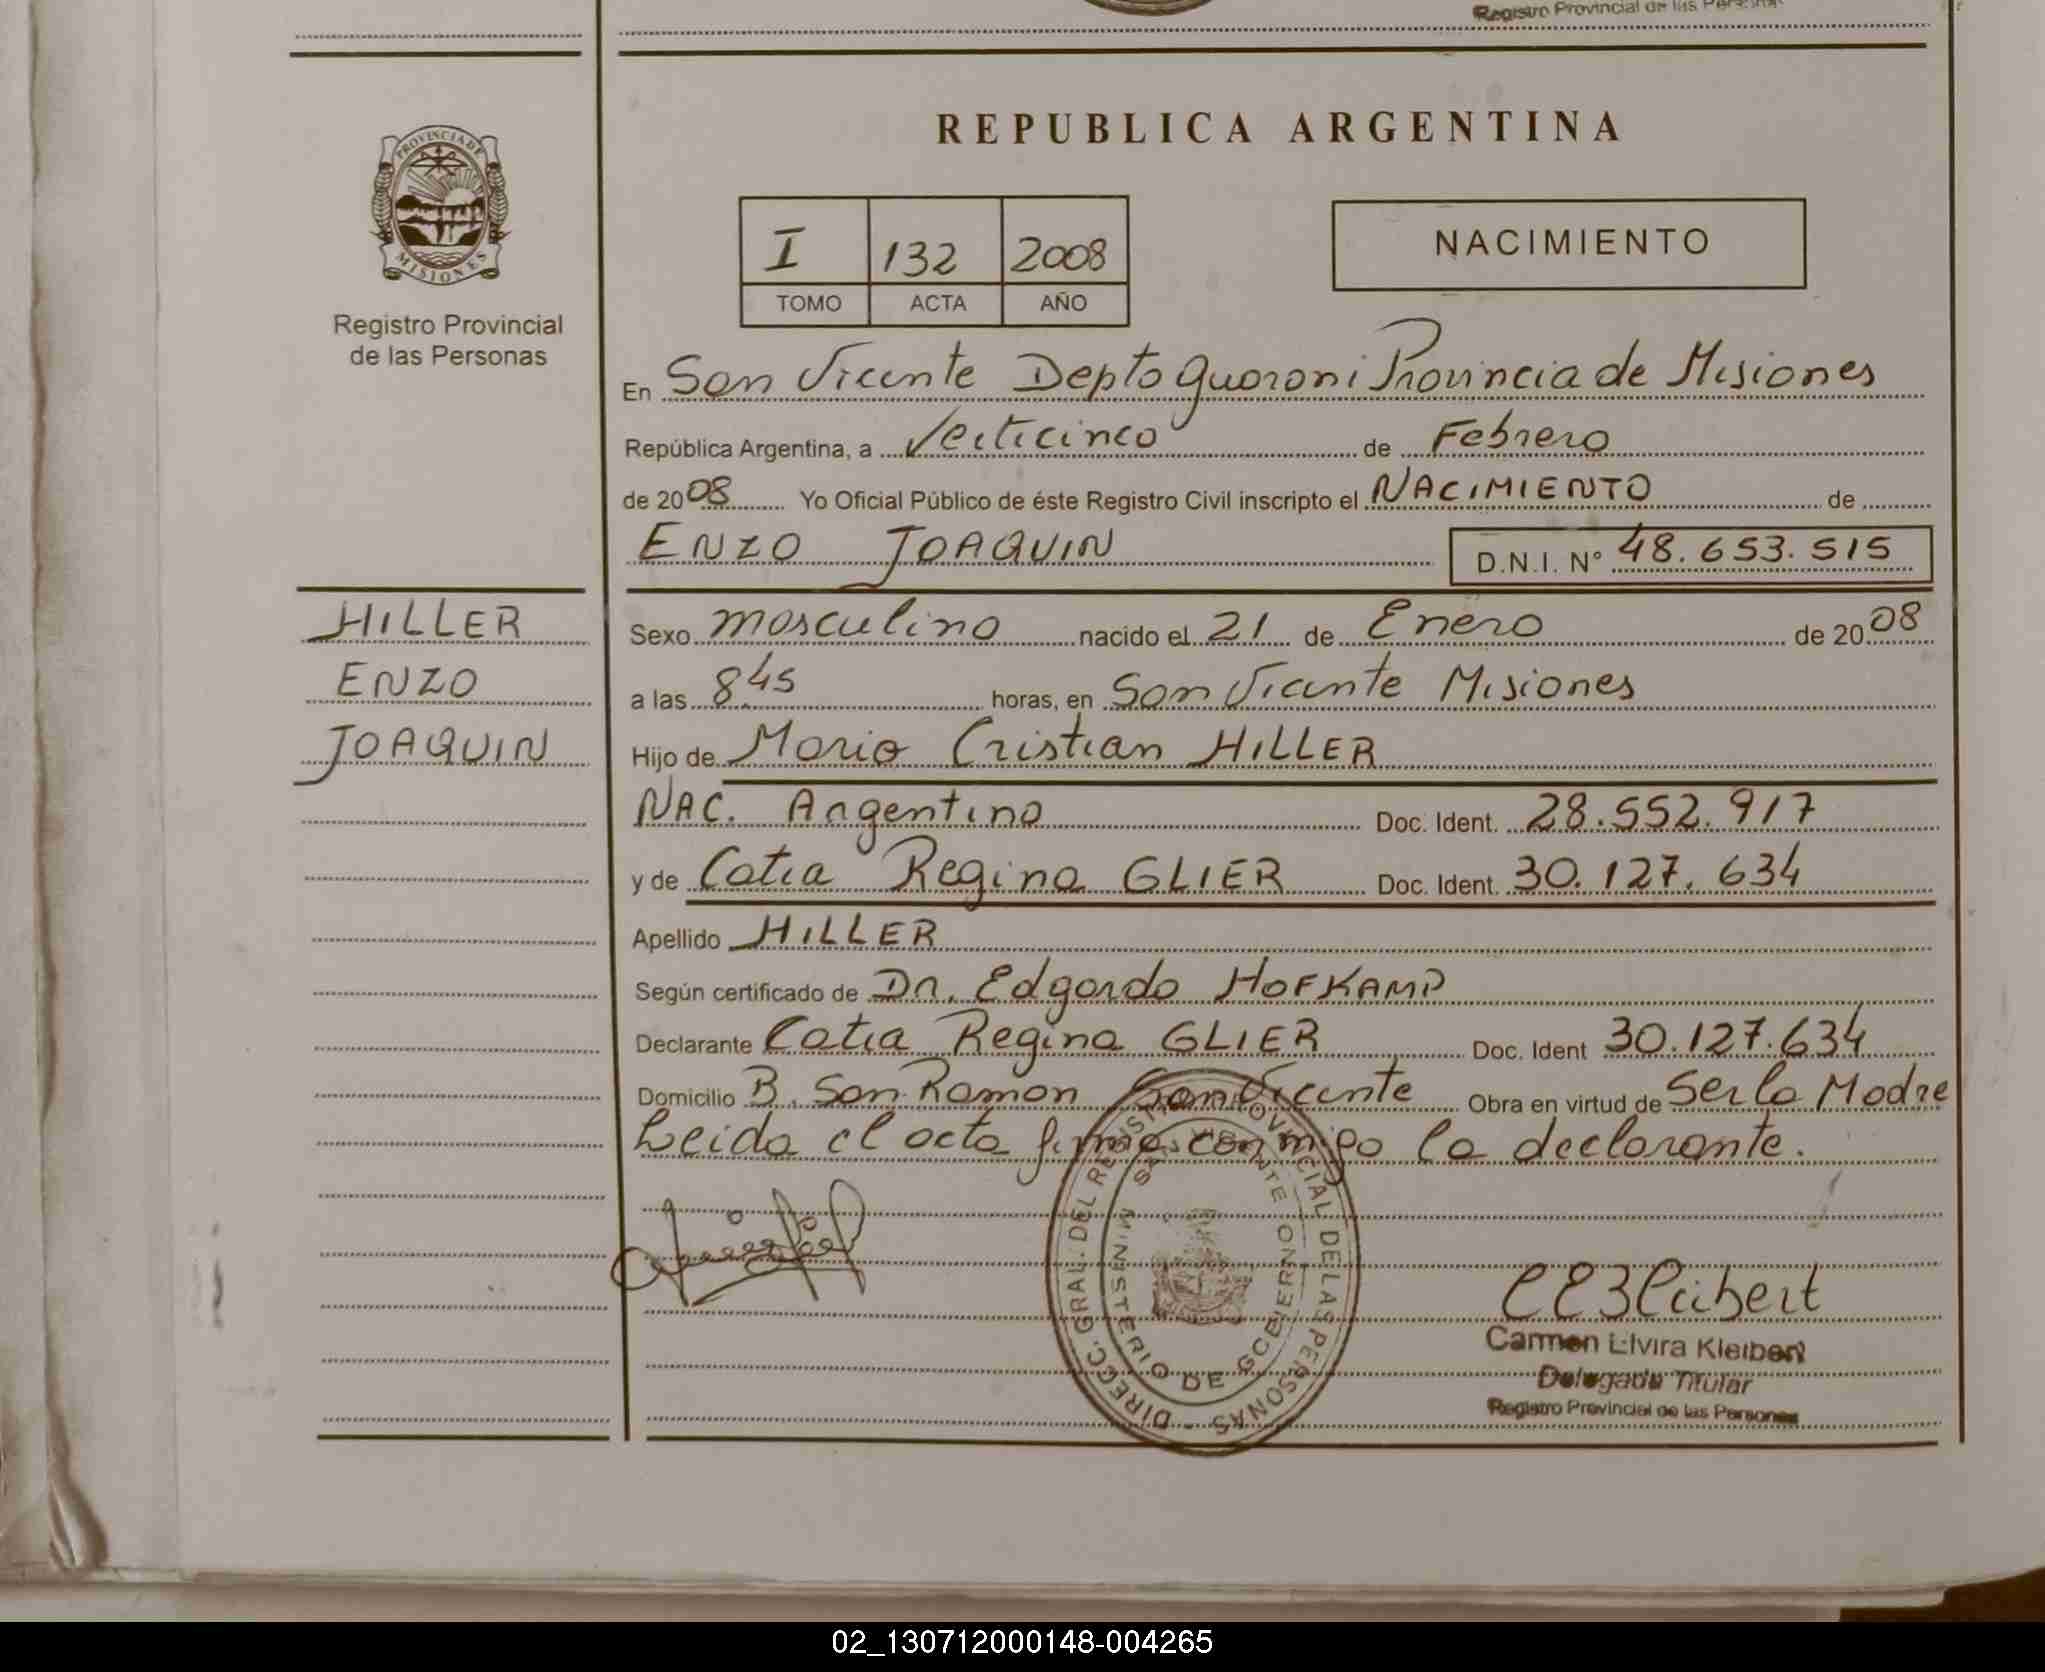 Registro Provincial de las Personas
PROVINCIA DE
MISIONES
Registro Provincial
de las Personas
REPUBLICA ARGENTINA
I 132 2008
TOMO ACTA AÑO
NACIMIENTO
En San Vicente Depto Guaraní Provincia de Misiones
República Argentina, a Veiticinco de Febrero
de 2008 Yo Oficial Público de éste Registro Civil inscripto el NACIMIENTO de
ENZO JOAQUIN D.N.I. Nº 48.653.515
HILLER
ENZO
JOAQUIN
Sexo masculino nacido el 21 de Enero de 2008
a las 8.45 horas, en San Vicente Misiones
Hijo de Mario Cristian HILLER
NAC. Argentino Doc. Ident. 28.552.917
y de Catia Regina GLIER Doc. Ident. 30.127.634
Apellido HILLER
Según certificado de Dr. Edgardo HOFKAMP
Declarante Catia Regina GLIER Doc. Ident 30.127.634
Domicilio B. San Ramon San Vicente Obra en virtud de Ser la Madre
Leida el acta firma conmigo la declarante.
DIRECC. GRAL. DEL REGISTRO PROVINCIAL DE LAS PERSONAS
MINISTERIO DE GOBIERNO
SAN VICENTE
Carmen Elvira Kleibert
Delegada Titular
Registro Provincial de las Personas
02_130712000148-004265